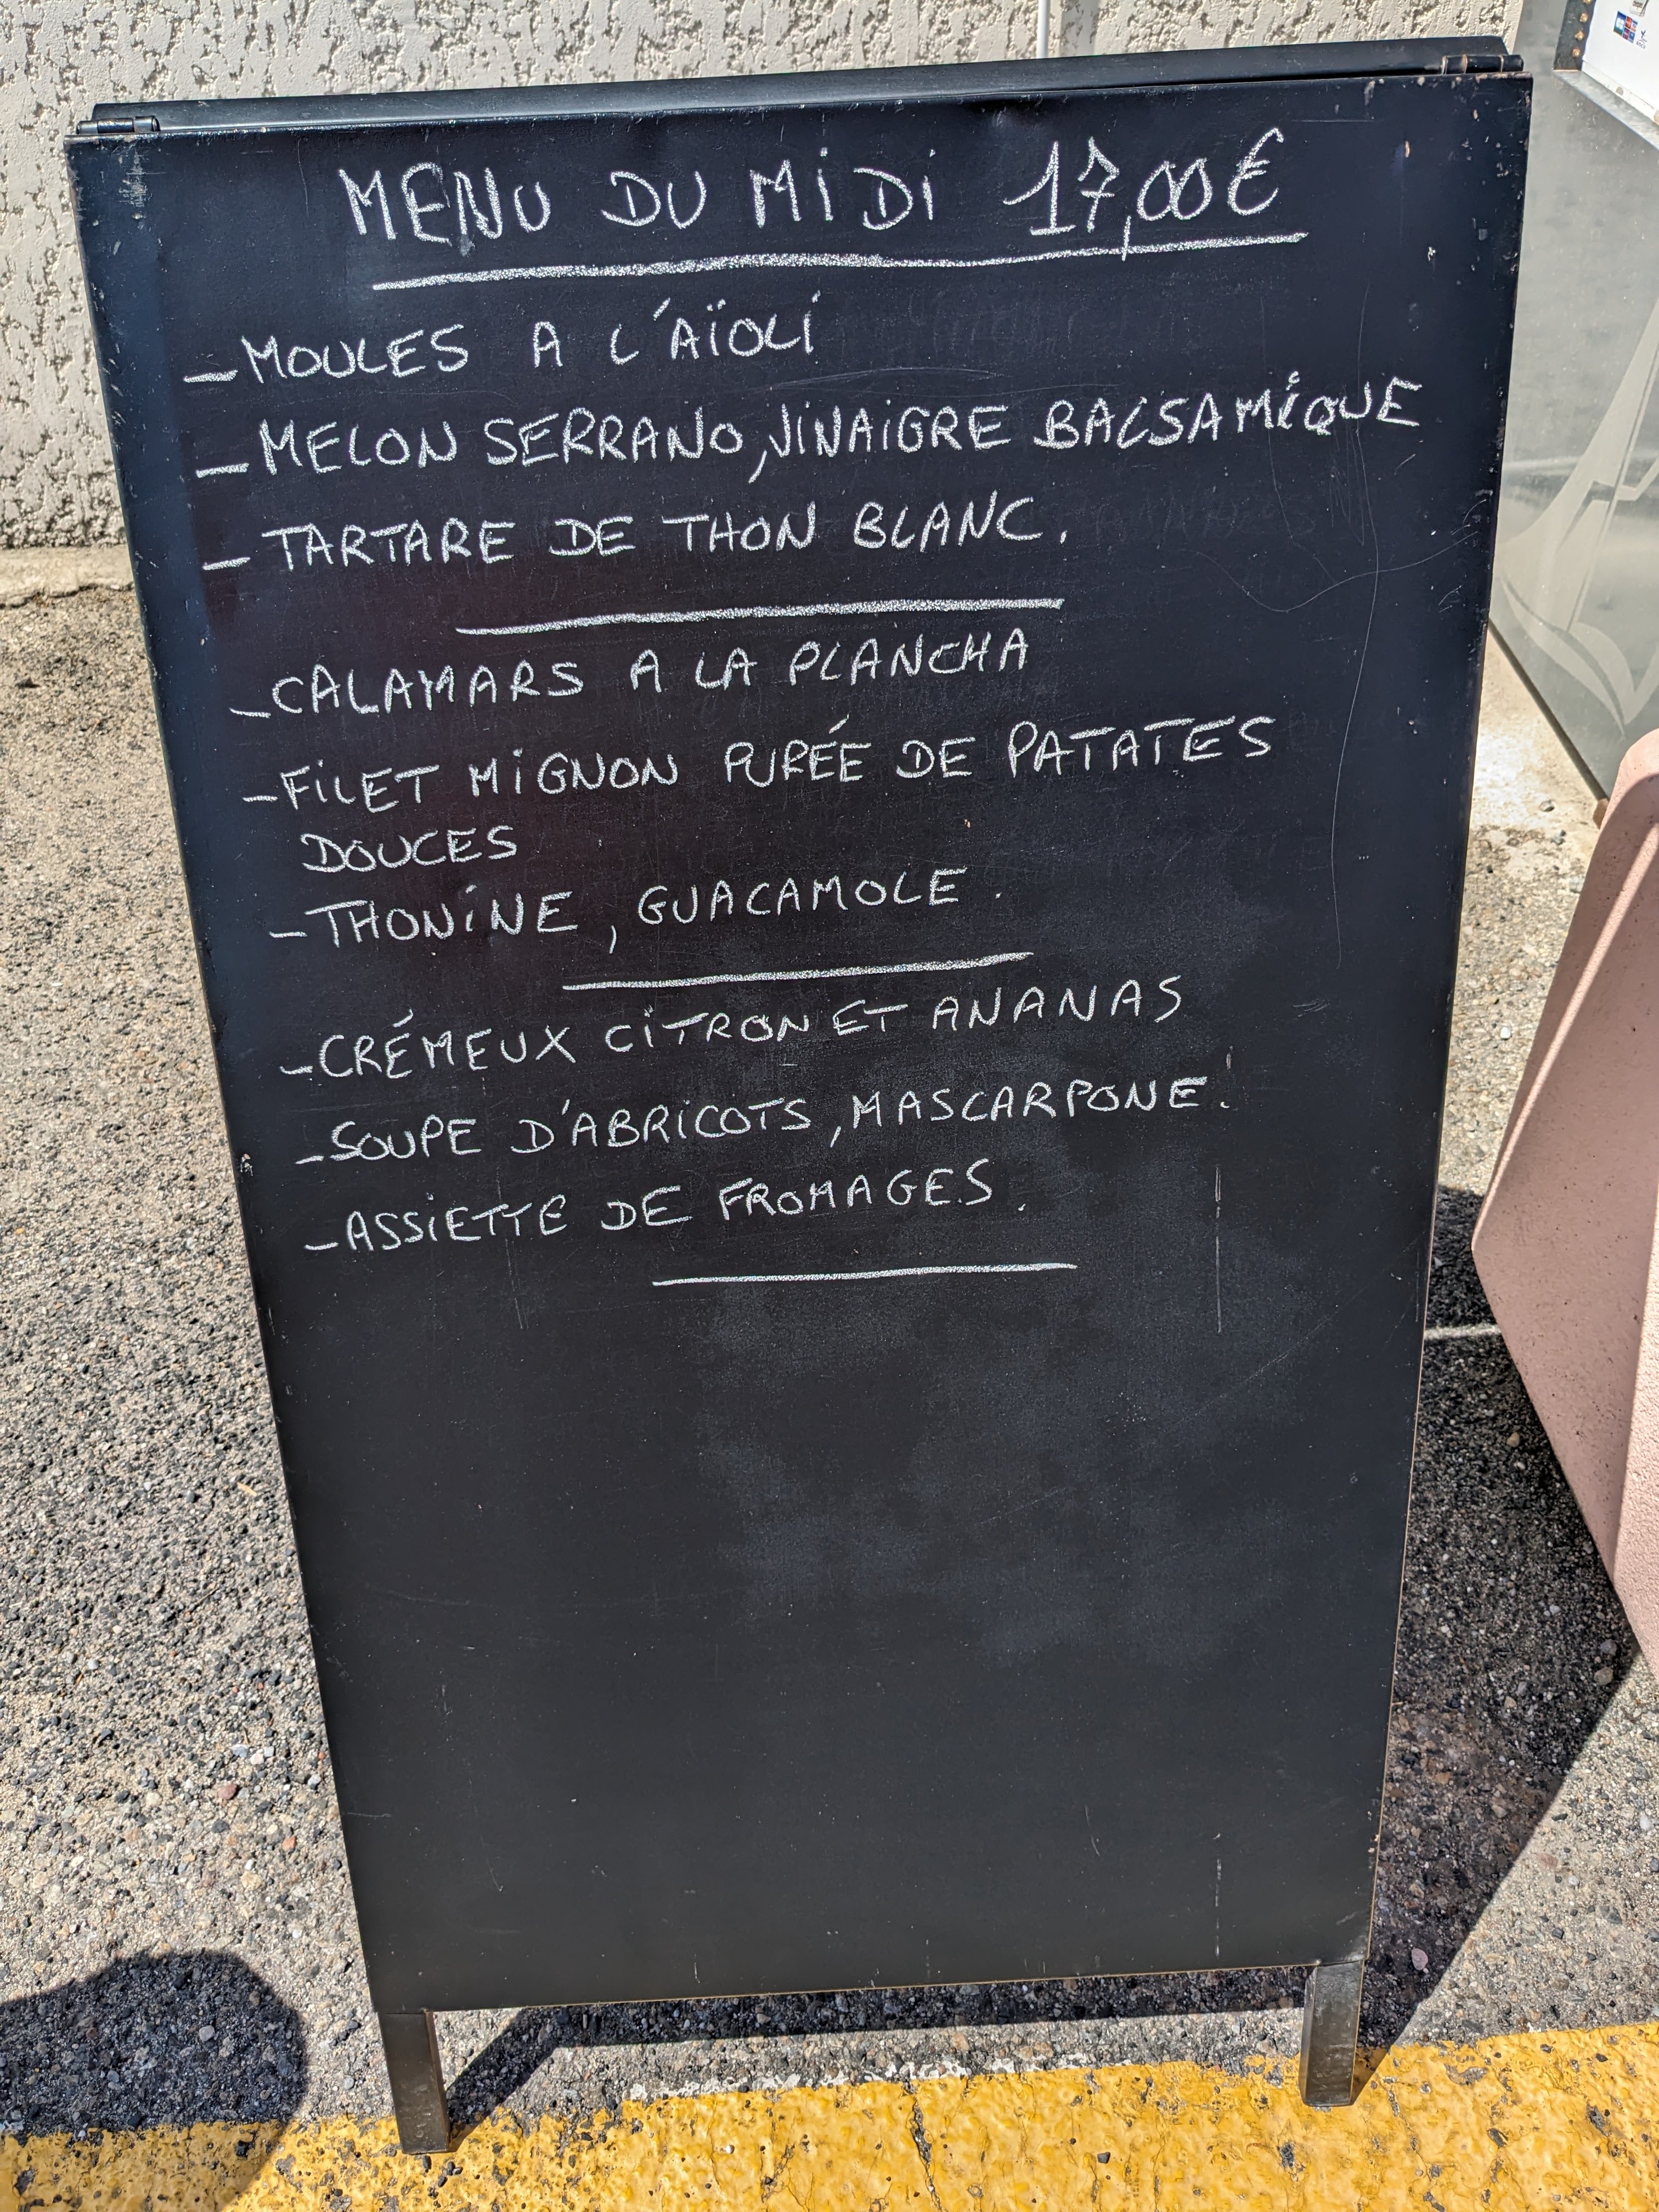 MENU DU MIDI 17,00€
-MOULES A L'AÏOLI
-MELON SERRANO, VINAIGRE BALSAMIQUE
-TARTARE DE THON BLANC.
-CALAMARS A LA PLANCHA
-FILET MIGNON PURÉE DE PATATES
DOUCES
-THONINE, GUACAMOLE.
-CRÉMEUX CITRON ET ANANAS
-SOUPE D'ABRICOTS, MASCARPONE.
-ASSIETTE DE FROMAGES.